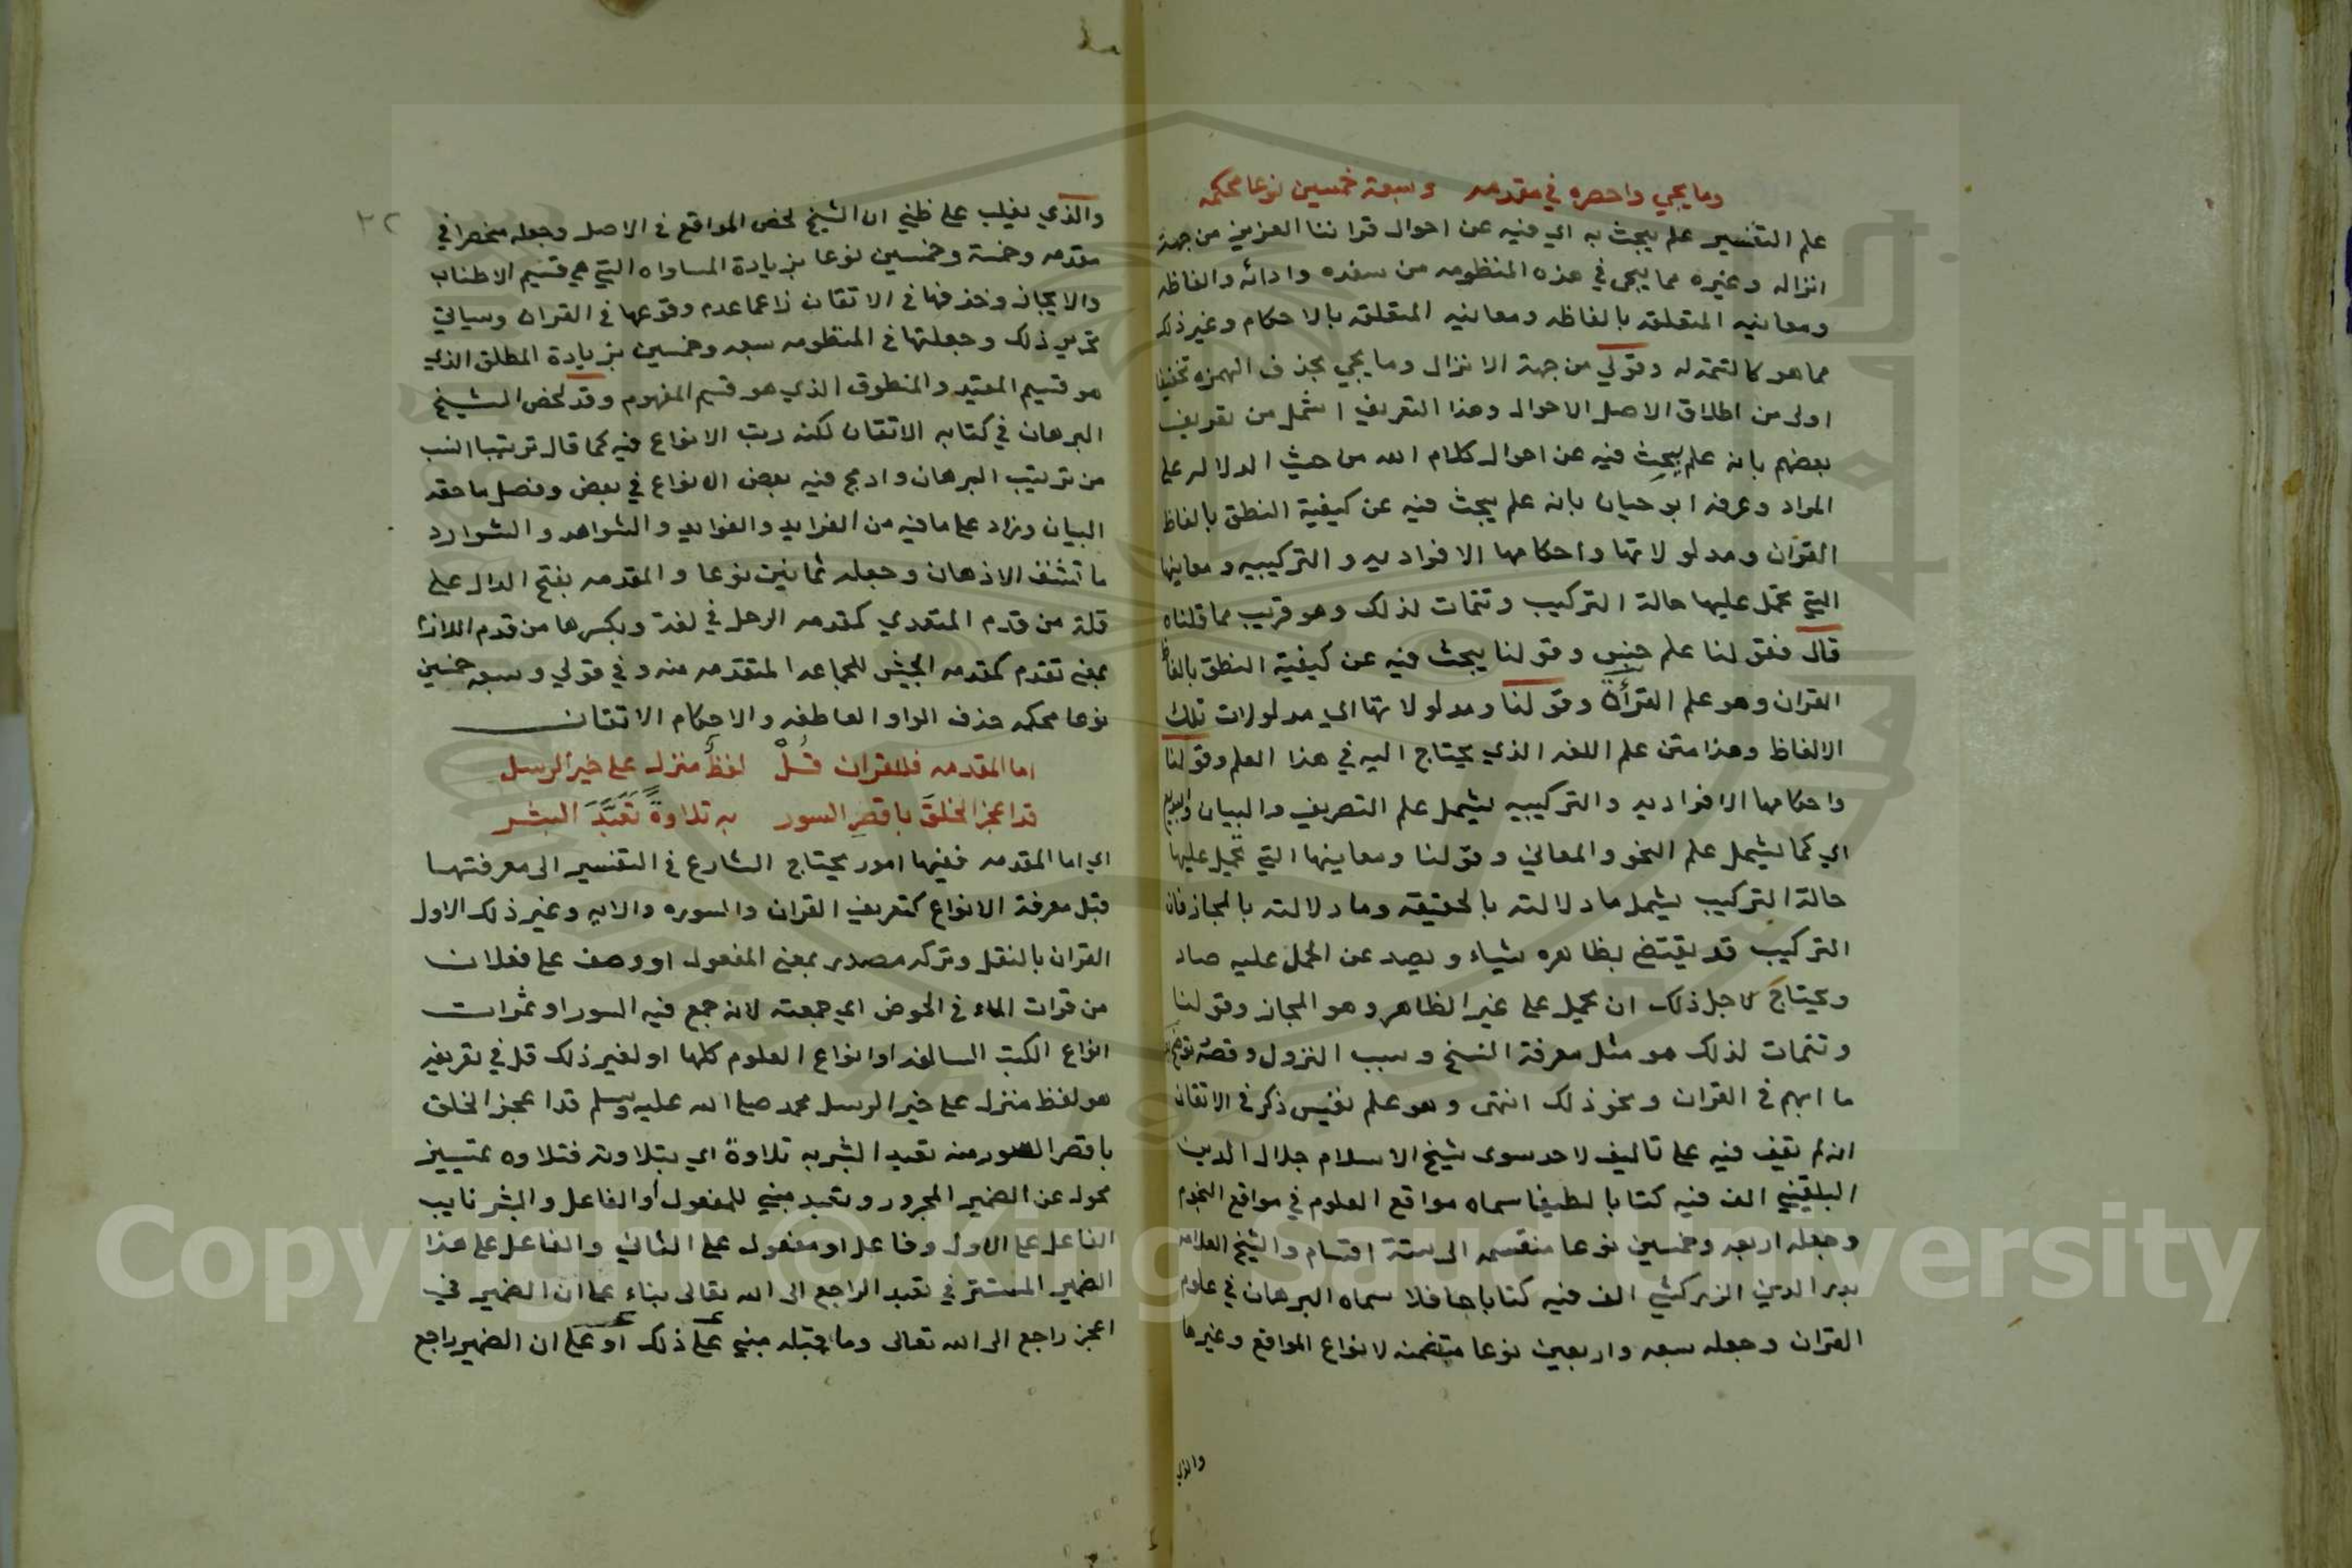 وما يجي واحصره في مقدمه وسبعة خمسين نوعا محكمه
علم التفسير علم يبحث به اي فيه عن احوال قراننا العزيز من جهة
انزاله وغيره مما يجي في هذه المنظومه من سنده وادائه والفاظه
ومعانيه المتعلقه بالفاظه ومعانيه المتعلقه بالاحكام وغير ذلك
مما هو كالتتمة له وقولي من جهة الانزال وما يجي بحذف الهمزه تخفيفا
اولى من اطلاق الاصل الاحوال وهذا التعريف اشمل من تعريف
بعضهم بانه علم يبحث فيه عن احوال كلام الله من حيث الدلاله على
المراد وعرفه ابو حيان بانه علم يبحث فيه عن كيفية النطق بالفاظ
القران ومدلولاتها واحكامها الافراديه والتركيبيه ومعانيها
التي تحمل عليها حالة التركيب وتتمات لذلك وهو قريب مما قلناه
قال فقولنا علم جنس وقولنا يبحث فيه عن كيفية النطق بالفاظ
القران وهو علم القرأة وقولنا ومدلولاتها اي مدلولات تلك
الالفاظ وهذا متن علم اللغه الذي يحتاج اليه في هذا العلم وقولنا
واحكامها الافراديه والتركيبيه يشمل علم التصريف والبيان والبديع
اي كما يشمل علم النحو والمعاني وقولنا ومعانيها التي تحمل عليها
حالة التركيب يشمل ما دلالته بالحقيقه وما دلالته بالمجاز فان
التركيب قد يقتضي بظاهره شياء ويصد عن الحمل عليه صاد
ويحتاج لاجل ذلك ان يحمل على غير الظاهر وهو المجاز وقولنا
وتتمات لذلك هو مثل معرفة النسخ وسبب النزول وقصة توضح
ما ابهم في القران ونحو ذلك انتهى وهو علم نفيس ذكر في الاتقان
انه لم يقف فيه على تاليف لاحد سوى شيخ الاسلام جلال الدين
البلقيني الف فيه كتابا لطيفا سماه مواقع العلوم في مواقع النجوم
وجعله اربعه وخمسين نوعا منقسمه الى ستة اقسام والشيخ العلامه
بدر الدين الزركشي الف فيه كتابا حافلا سماه البرهان في علوم
القران وجعله سبعه واربعين نوعا متضمنه لانواع المواقع وغيرها
والذي
٣٢
والذي يغلب على ظني ان الشيخ لخص المواقع في الاصل وجعله منحصرا في
مقدمه وخمسة وخمسين نوعا بزيادة المساواه التي هي قسيم الاطناب
والايجاز وحذفها في الاتقان زاعما عدم وقوعها في القران وسياتي
تحرير ذلك وجعلتها في المنظومه سبعه وخمسين بزيادة المطلق الذي
هو قسيم المقيد والمنطوق الذي هو قسيم المفهوم وقد لخص الشيخ
البرهان في كتابه الاتقان لكنه رتب الانواع فيه كما قال ترتيبا انسب
من ترتيب البرهان وادمج فيه بعض الانواع في بعض وفصل ما حقه
البيان وزاد على ما فيه من الفرايد والفوايد والشواهد والشوارد
ما تشنف الاذهان وجعله ثمانين نوعا والمقدمه بفتح الدال على
قلة من قدم المتعدي كمقدمه الرحل في لغة وبكسرها من قدم اللازم
بمعنى تقدم كمقدمه الجيش للجماعه المتقدمه منه وفي قولي وسبعه خمسين
نوعا محكمه حذف الواو العاطفه والاحكام الاتقان
اما المقدمه فللقران قُلْ لفظٌ منزل على خير الرسل
قد اعجز الخلقَ باقصرِ السور به تلاوةً تَعَبَّدَ البشر
اي اما المقدمه ففيها امور يحتاج الشارع في التفسير الى معرفتها
قبل معرفة الانواع كتعريف القران والسوره والايه وغير ذلك الاول
القران بالنقل وتركه مصدر بمعنى المفعول او وصف على فعلان
من قرات الماء في الحوض اي جمعته لانه جمع فيه السور او ثمرات
انواع الكتب السالفه او انواع العلوم كلها او لغير ذلك قل في تعريفه
هو لفظ منزل على خير الرسل محمد صلى الله عليه وسلم قد اعجز الخلق
باقصر السور منه تعبد البشر به تلاوة اي بتلاوته فتلاوه تمييز
محول عن الضمير المجرور وتعبد مبني للمفعول أو الفاعل والبشر نايب
الفاعل على الاول وفاعل او مفعول على الثاني والفاعل على هذا
الضمير المستتر في تعبد الراجع الى الله تعالى بناء على ان الضمير في
اعجز راجع الى الله تعالى وما قبله مبني على ذلك أو على ان الضمير راجع
Copyright © King Saud University